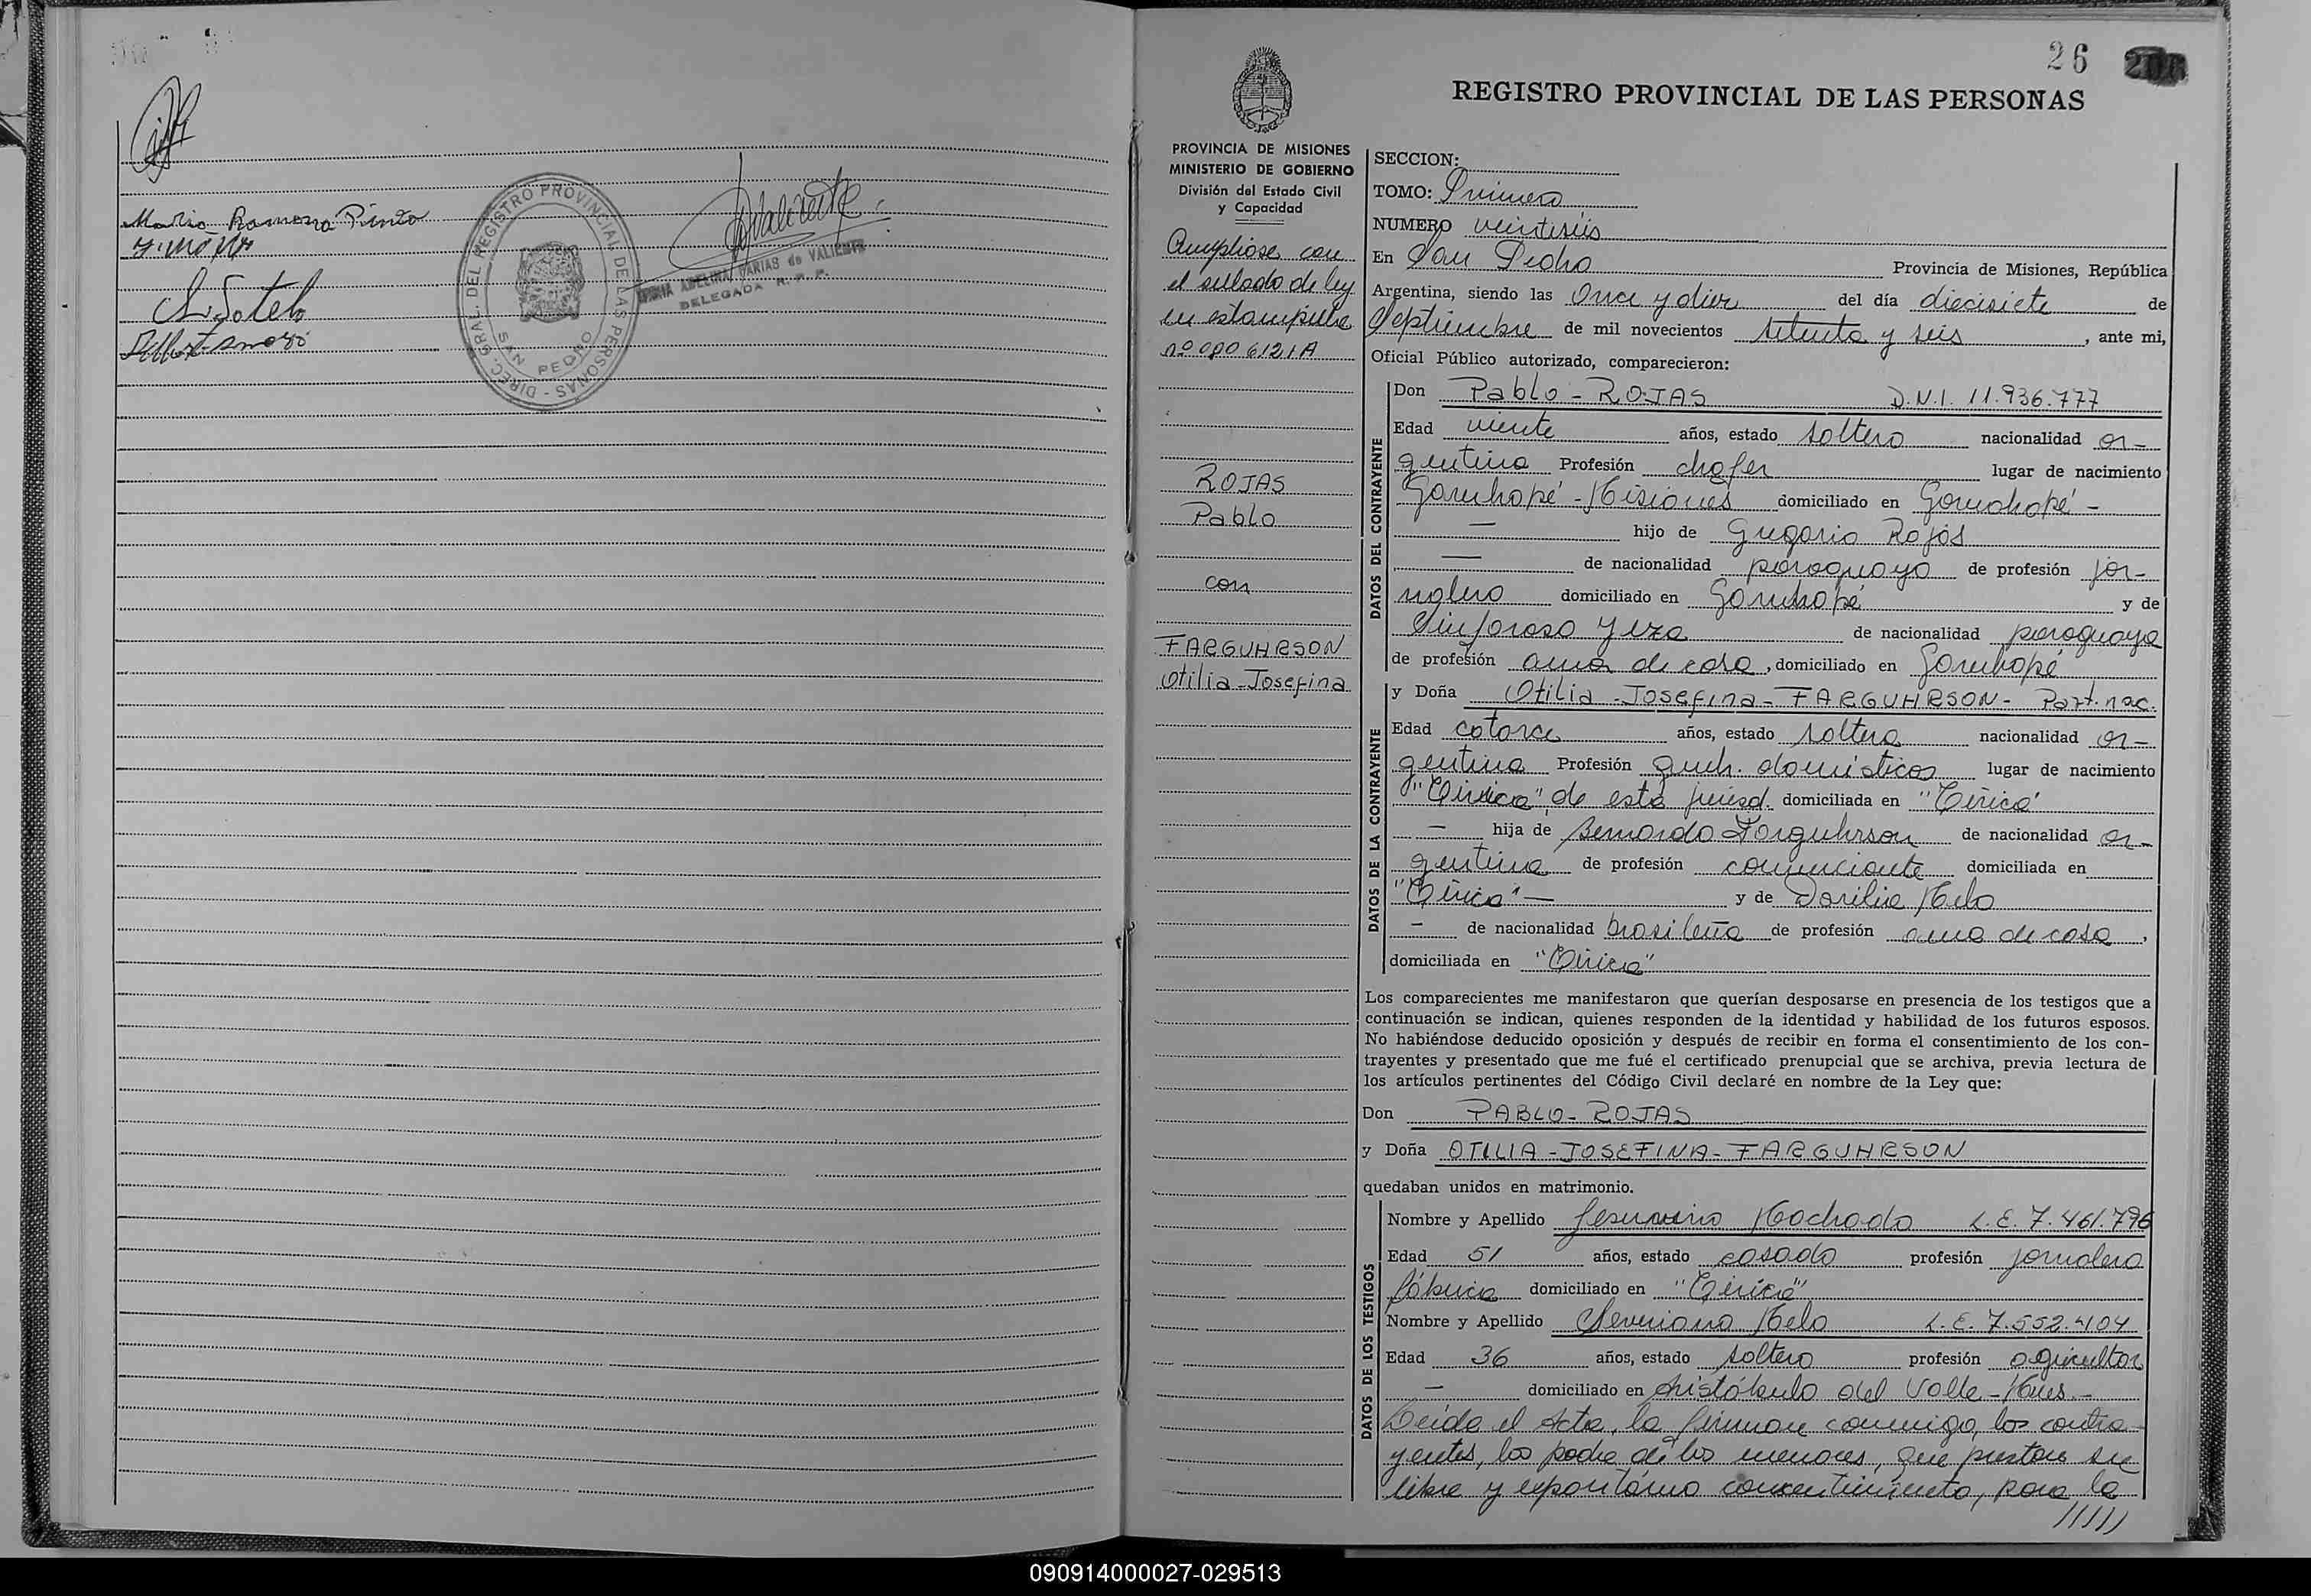 Maria Ramona Pinto
A. Sotelo
DIREC. GRAL. DEL REGISTRO PROVINCIAL DE LAS PERSONAS
SAN PEDRO
ADELINA FARIAS de VALIENTE
DELEGADA R. P. P.
26
REGISTRO PROVINCIAL DE LAS PERSONAS
PROVINCIA DE MISIONES
MINISTERIO DE GOBIERNO
División del Estado Civil
y Capacidad
Ampliase con
el sellado de ley
en estampilla
nº 0806121A
ROJAS
Pablo
con
FARGUHRSON
Otilia-Josefina
SECCION:
TOMO: Primero
NUMERO veintiseis
En San Pedro Provincia de Misiones, República
Argentina, siendo las Once y diez del día diecisiete de
Septiembre de mil novecientos setenta y seis, ante mi,
Oficial Público autorizado, comparecieron:
DATOS DEL CONTRAYENTE
Don Pablo - ROJAS D.N.I. 11.936.777
Edad veinte años, estado soltero nacionalidad ar-
gentina Profesión chofer lugar de nacimiento
Garuhapé - Misiones domiciliado en Garuhapé -
— hijo de Gregorio Rojas
— de nacionalidad paraguayo de profesión jor-
nalero domiciliado en Garuhapé y de
Sinforosa de nacionalidad paraguaya
de profesión ama de casa, domiciliado en Garuhapé
DATOS DE LA CONTRAYENTE
y Doña Otilia-Josefina-FARGUHRSON- Part. nac.
Edad catorce años, estado soltera nacionalidad ar-
gentina Profesión queh. domésticos lugar de nacimiento
de esta jurisd. domiciliada en
— hija de Bernardo Farguhrson de nacionalidad ar-
gentina de profesión comerciante domiciliada en
y de Dorilia Melo
— de nacionalidad brasileña de profesión ama de casa,
domiciliada en
Los comparecientes me manifestaron que querían desposarse en presencia de los testigos que a
continuación se indican, quienes responden de la identidad y habilidad de los futuros esposos.
No habiéndose deducido oposición y después de recibir en forma el consentimiento de los con-
trayentes y presentado que me fué el certificado prenupcial que se archiva, previa lectura de
los artículos pertinentes del Código Civil declaré en nombre de la Ley que:
Don PABLO-ROJAS
y Doña OTILIA-JOSEFINA-FARGUHRSON
quedaban unidos en matrimonio.
DATOS DE LOS TESTIGOS
Nombre y Apellido Machado L.E. 7.461.796
Edad 51 años, estado casado profesión jornalero
fábrica domiciliado en
Nombre y Apellido Severiano Melo L.E. 7.552.404
Edad 36 años, estado soltero profesión agricultor
— domiciliado en Aristóbulo del Valle - Mnes.-
Leída el Acta, la firman conmigo, los contra-
yentes, los padre de los menores, que prestan su
libre y expontáneo concentimiento, para la
/////
090914000027-029513